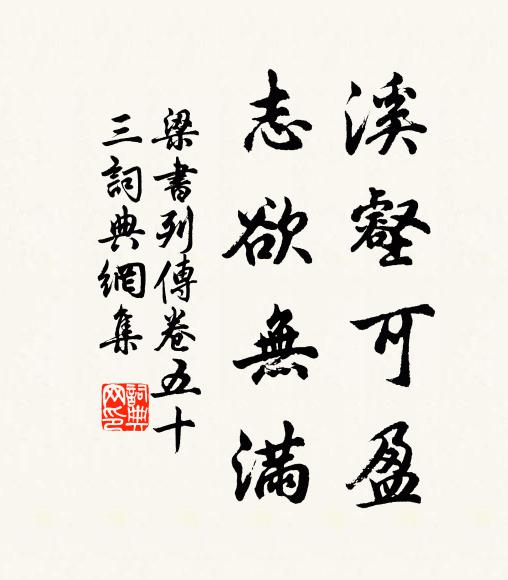 溪壑可盈
志欲無滿
梁書列傳卷五十
三詞典網集
詞典
网印